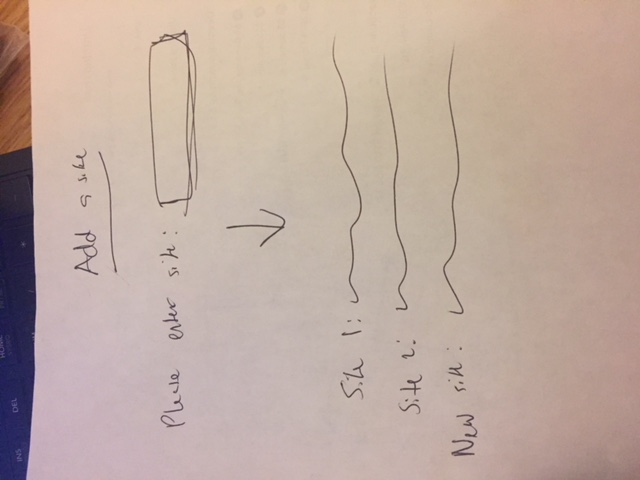 INS DEL HOME
Add a site
Please enter site:
Site 1:
Site 2:
New site: